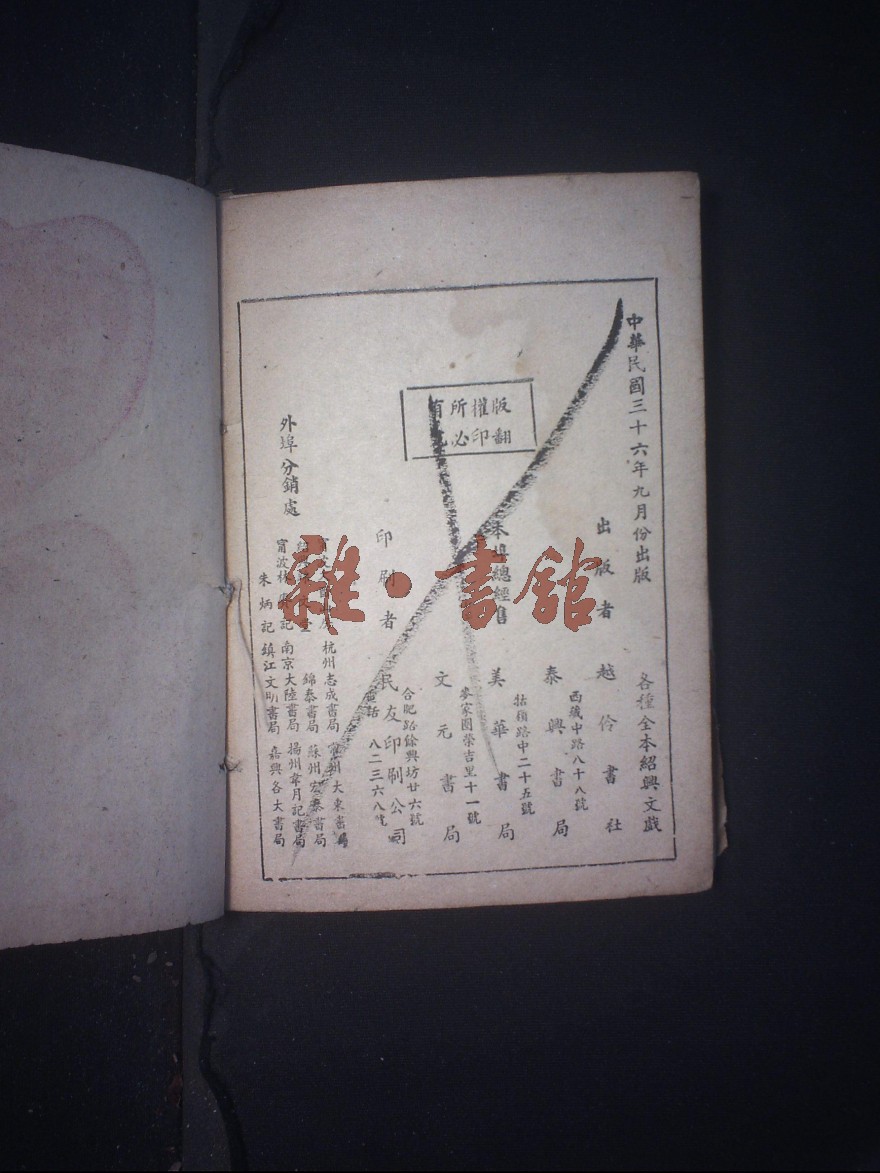 中華民國三十六年九月份出版
各種全本紹興文戲
出版者 越伶書社
西藏中路八十八號
泰興書局
牯嶺路中二十五號
本埠總經售 美華書局
麥家圈榮吉里十一號
文元書局
版權所有
翻印必究
合肥路餘興坊廿六號
印刷者 民友印刷公司
電話 八二三六八號
外埠分銷處
杭州志成書局 大東書局
錦泰書局 蘇州宏泰書局
甯波林 記 南京大陸書局 揚州韋月記書局
朱炳記 鎮江文明書局 嘉興各大書局
雜·書館